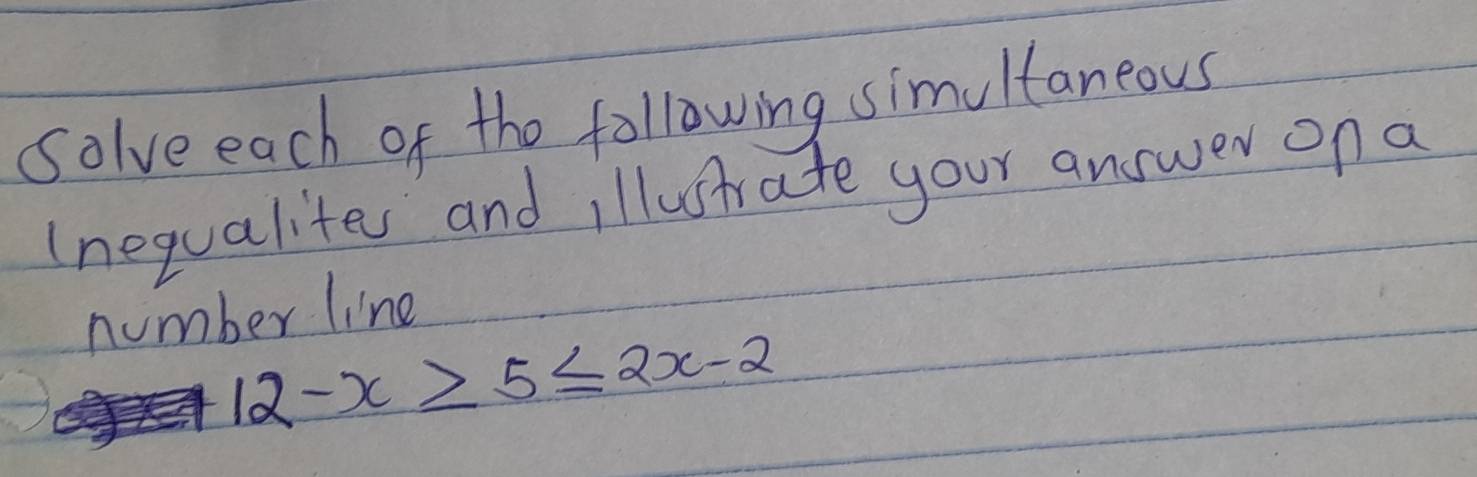 Solve each of the following simultaneous
Inequalites and illustrate your answer on a
number line
12-x ≥ 5 ≤ 2x-2